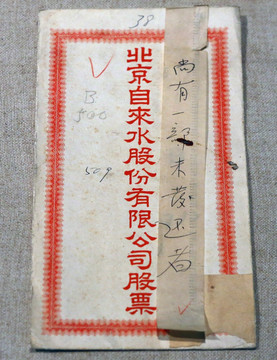 38
B
500
509
北京自來水股份有限公司股票
尚有一部未發還者